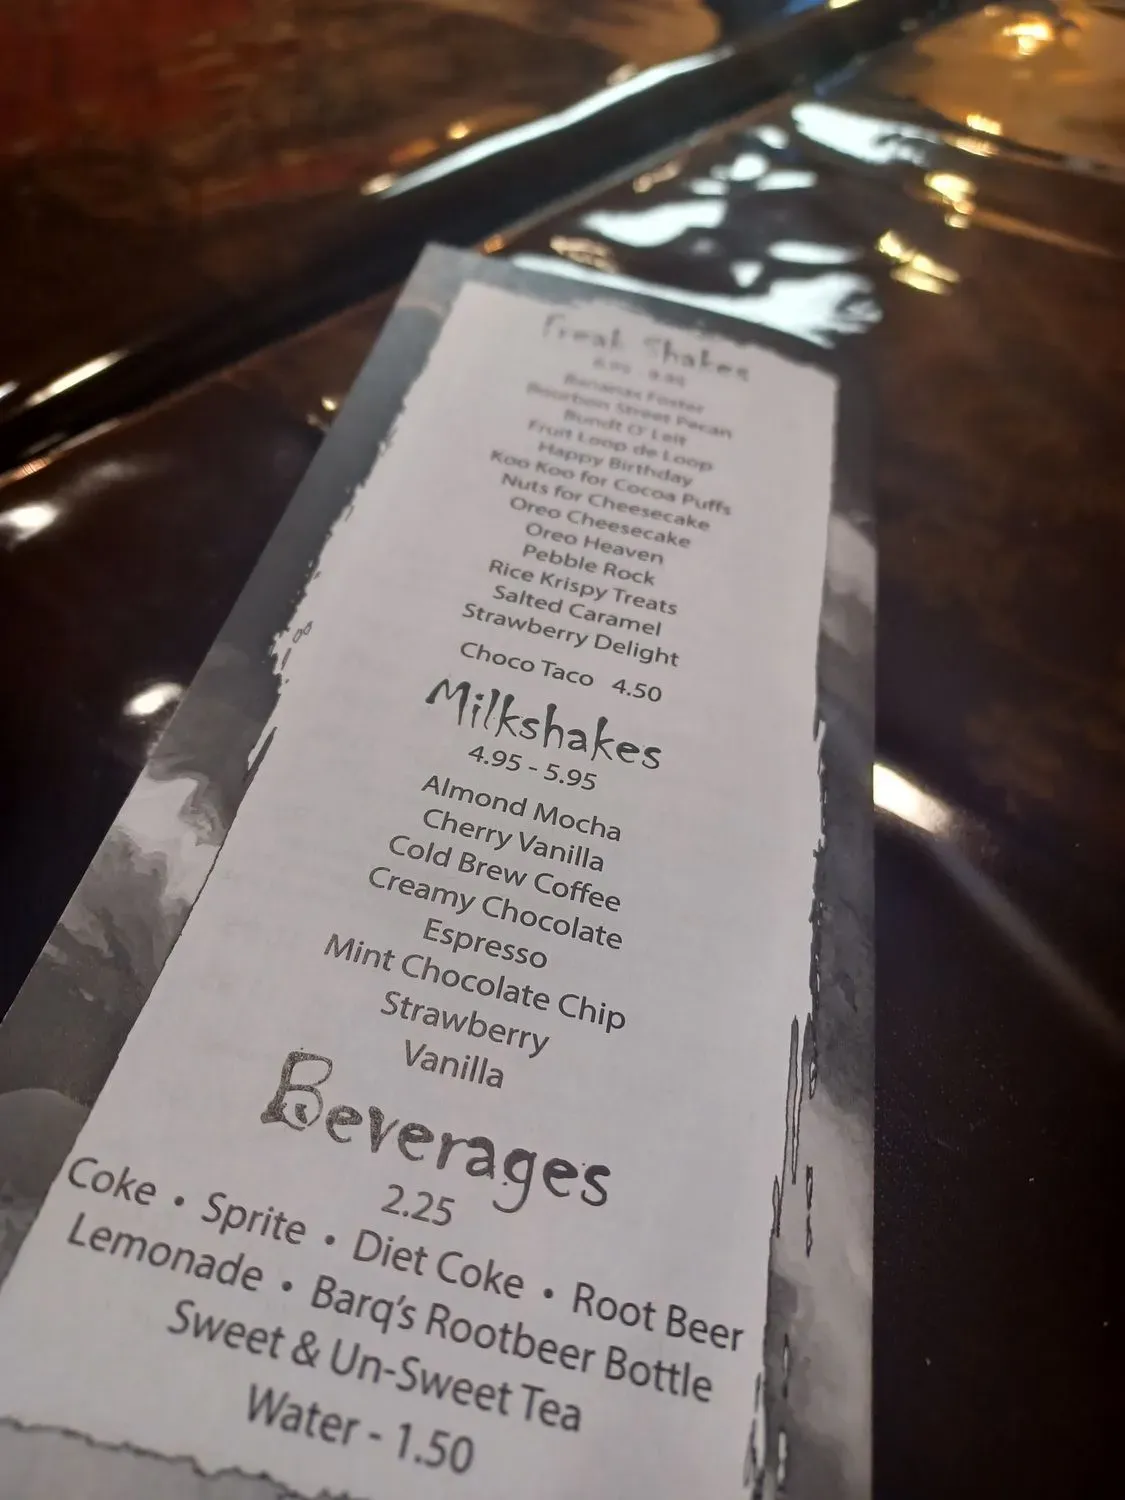 Freak Shakes
Bananas Foster
Bourbon Street Pecan
Bundt O' Leit
Fruit Loop de Loop
Happy Birthday
Koo Koo for Cocoa Puffs
Nuts for Cheesecake
Oreo Cheesecake
Oreo Heaven
Pebble Rock
Rice Krispy Treats
Salted Caramel
Strawberry Delight
Choco Taco 4.50
Milkshakes
4.95 - 5.95
Almond Mocha
Cherry Vanilla
Cold Brew Coffee
Creamy Chocolate
Espresso
Mint Chocolate Chip
Strawberry
Vanilla
Beverages
2.25
Coke • Sprite • Diet Coke • Root Beer
Lemonade • Barq's Rootbeer Bottle
Sweet & Un-Sweet Tea
Water - 1.50